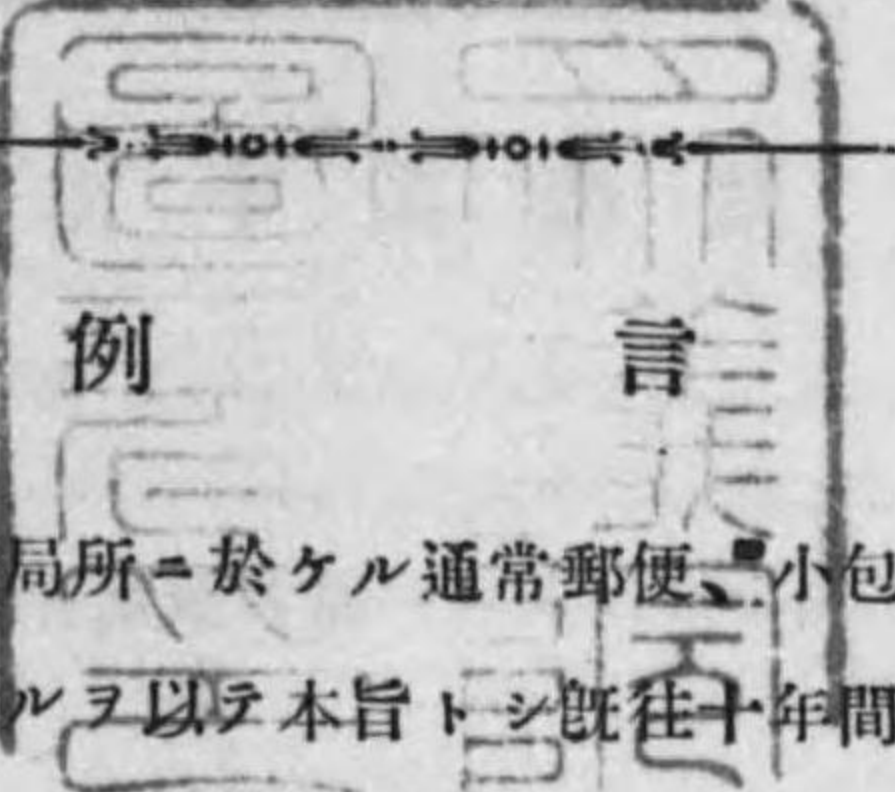 例言
局所ニ於ケル通常郵便、小包
ルヲ以テ本旨トシ既往十年間